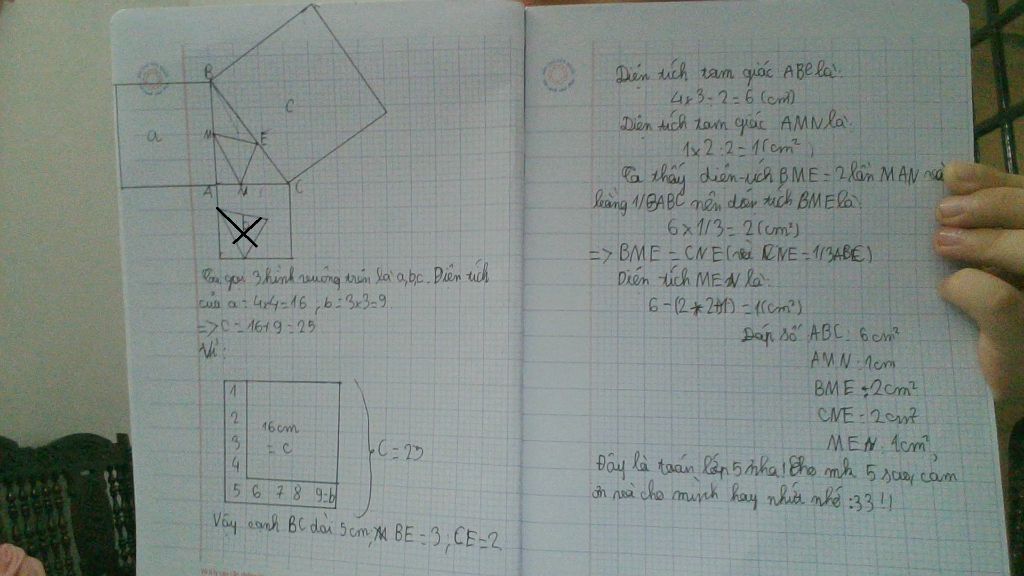 B
C
a
M
E
A
N
C
Ta gọi 3 hình vuông trên là a,b,c. Diện tích
của a = 4x4=16 , b = 3x3=9
=> C = 16+9 = 25
Vì:
1
2
16cm
3
= c
4
5 6 7 8 9=b
C = 25
Vậy cạnh BC dài 5cm, BE = 3 ; CE = 2
Diện tích tam giác ABC là:
4x3:2=6 (cm²)
Diện tích tam giác AMN là:
1x2:2=1(cm²)
Ta thấy diện tích BME = 2 lần MAN và
bằng 1/3 ABC nên diện tích BME là:
6x1/3 = 2(cm²)
=> BME = CNE (vì CNE = 1/3ABC)
Diện tích MEN là:
6-(2+2+1) = 1(cm²)
Đáp số ABC: 6cm²
AMN: 1cm
BME = 2cm²
CNE = 2cm²
MEN: 1cm²
Đây là toán lớp 5 nha! Cho mk 5 sao, cảm
ơn và cho mình hay nhất nhé :33!!